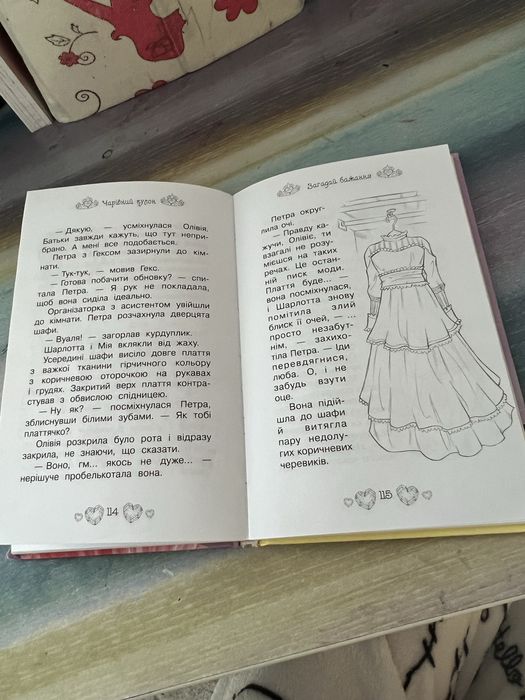 Чарівний кулон
— Дякую, — усміхнулася Олівія.
Батьки завжди кажуть, що тут непри-
брано. А мені все подобається.
Петра з Гексом зазирнули до кім-
нати.
— Тук-тук, — мовив Гекс.
— Готова побачити обновку? — спи-
тала Петра. — Я рук не покладала,
щоб вона сиділа ідеально.
Організаторка з асистентом увійшли
до кімнати. Петра розчахнула дверцята
шафи.
— Вуаля! — загорлав курдуплик.
Шарлотта і Мія вклякли від жаху.
Усередині шафи висіло довге плаття
з важкої тканини гірчичного кольору
з коричневою оторочкою на рукавах
і грудях. Закритий верх плаття контра-
стував з обвислою спідницею.
— Ну як? — посміхнулася Петра,
зблиснувши білими зубами. — Як тобі
платтячко?
Олівія розкрила було рота і відразу
закрила, не знаючи, що сказати.
— Воно, гм... якось не дуже... —
нерішуче пробелькотала вона.
114
Загадай бажання
Петра округ-
лила очі.
— Правду ка-
жучи, Олівіє, ти
взагалі не розу-
мієшся на таких
речах. Це остан-
ній писк моди.
Плаття буде... —
вона посміхнулася,
і Шарлотта знову
помітила злий
блиск її очей, — ...
просто незабут-
нім, — захихо-
тіла Петра. — Іди
перевдягнися,
люба. О, і не
забудь взути
оце.
Вона підій-
шла до шафи
й витягла
пару недолу-
гих коричневих
черевиків.
115
hello